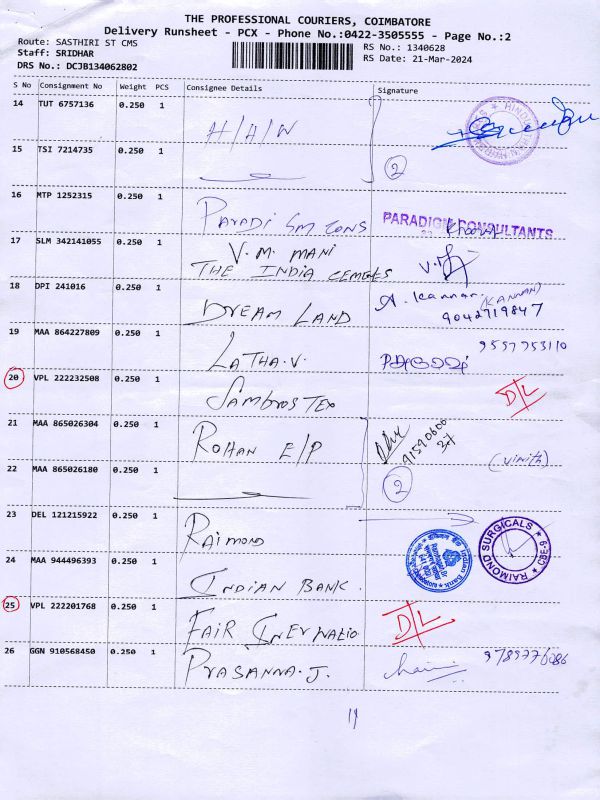 THE PROFESSIONAL COURIERS, COIMBATORE
Delivery Runsheet - PCX - Phone No.:0422-3505555 - Page No.:2
Route: SASTHIRI ST CMS
RS No.: 1340628
Staff: SRIDHAR
RS Date: 21-Mar-2024
DRS No.: DCJB134062802
S No Consignment No Weight PCS Consignee Details Signature
14 TUT 6757136 0.250 1 H/H/W
15 TSI 7214735 0.250 1 2
16 MTP 1252315 0.250 1 PARADIGM CONS PARADIGM CONSULTANTS
17 SLM 342141055 0.250 1 V. M. MANI
THE INDIA CEMENTS
18 DPI 241016 0.250 1 DREAM LAND A. Kannan (KANNAN)
9042719847
19 MAA 864227809 0.250 1 LATHA.V.
20 VPL 222232508 0.250 1 SAMBROS TEX D/L
21 MAA 865026304 0.250 1 ROHAN E/P
(Vinith)
22 MAA 865026180 0.250 1 2
23 DEL 121215922 0.250 1 RAIMOND RAIMOND SURGICALS
24 MAA 944496393 0.250 1 INDIAN BANK.
25 VPL 222201768 0.250 1 FAIR INERNATIO D/L
26 GGN 910568450 0.250 1 PRASANNA.J.